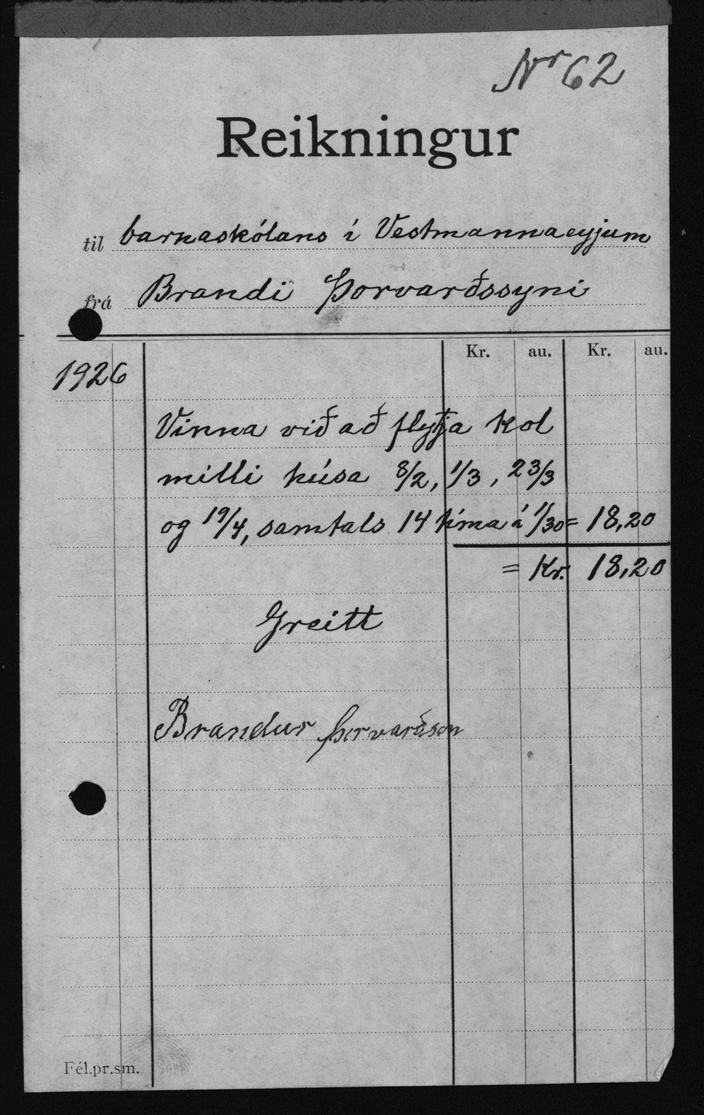 Nr 62
Reikningur
til barnaskólans í Vestmannaeyjum
frá Brandi Þorvarðssyni
Kr. au. Kr. au.
1926
Vinna við að flytja kol
milli húsa 8/2, 1/3, 23/3
og 19/4, samtals 14 tíma á 1/30 = 18,20
= Kr. 18,20
Greitt
Brandur Þorvarðsson
Fél.pr.sm.